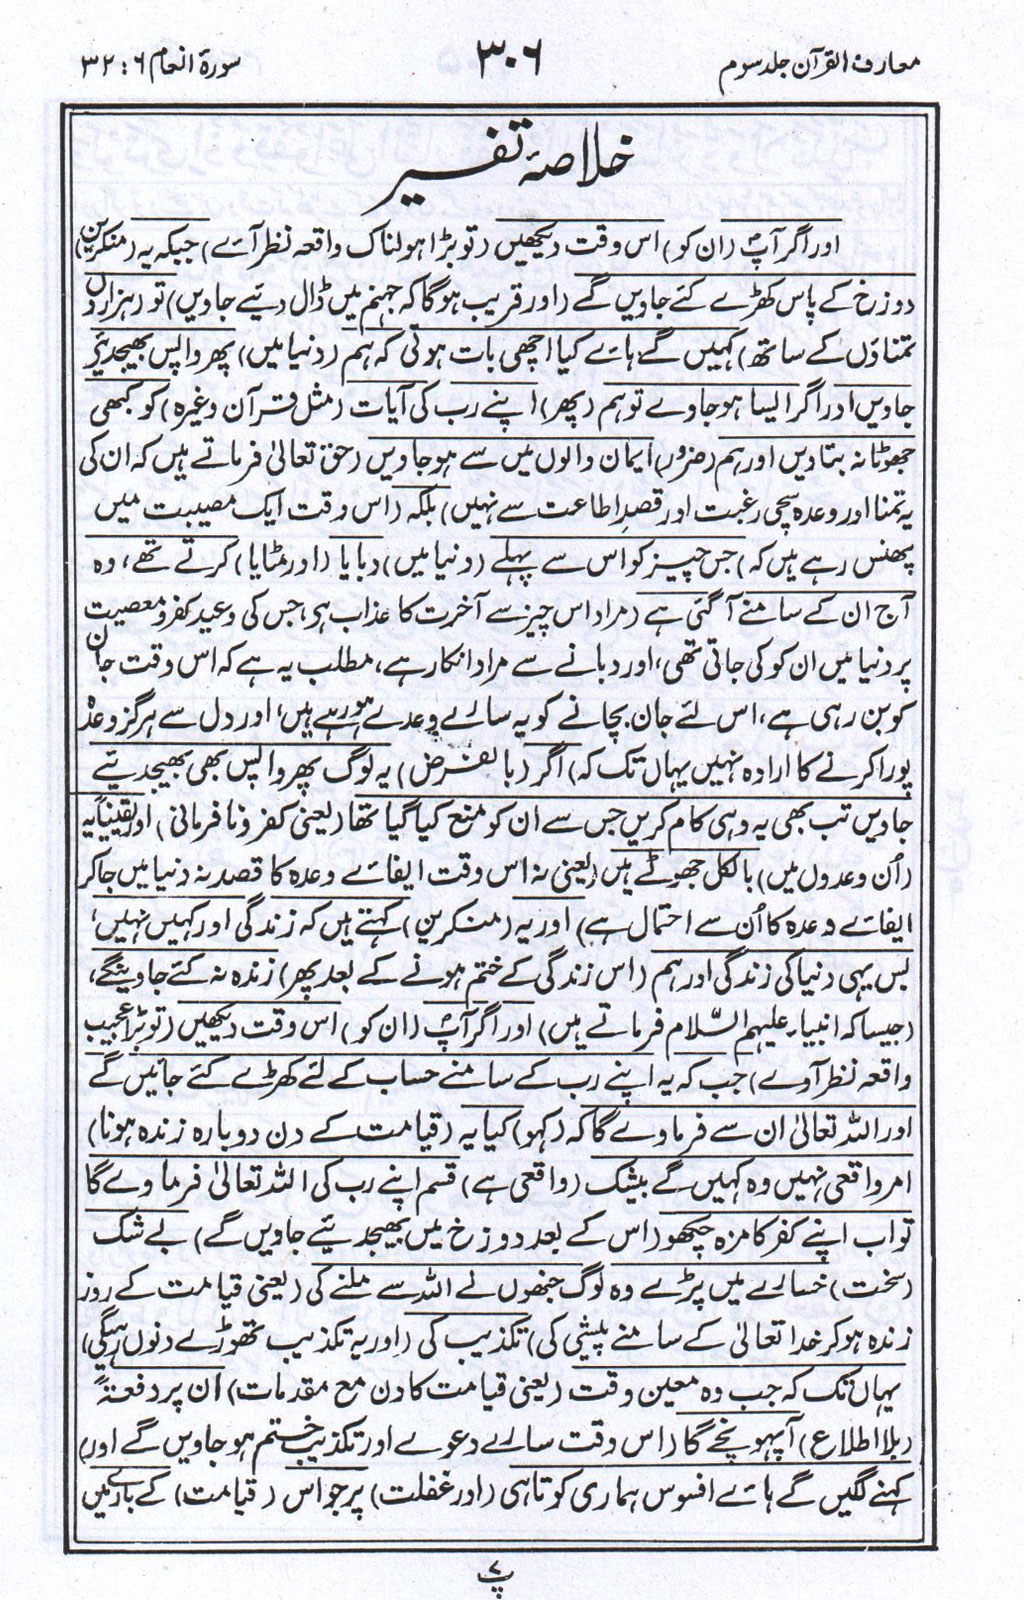 معارف القرآن جلد سوم
۳۰۶
سورۃ انعام ۶ : ۳۲
خلاصۂ تفسیر
اور اگر آپؐ (ان کو) اس وقت دیکھیں (تو بڑا ہولناک واقعہ نظر آئے) جبکہ یہ (منکرین)
دوزخ کے پاس کھڑے کئے جاویں گے (اور قریب ہوگا کہ جہنم میں ڈال دئیے جاویں) تو (ہزاروں
تمناؤں کے ساتھ) کہیں گے ہائے کیا اچھی بات ہوتی کہ ہم (دنیا میں) پھر واپس بھیجدئیے
جاویں اور اگر ایسا ہو جاوے تو ہم (پھر) اپنے رب کی آیات (مثل قرآن وغیرہ) کو کبھی
جھوٹا نہ بتاویں اور ہم (ضرور) ایمان والوں میں سے ہو جاویں (حق تعالیٰ فرماتے ہیں کہ ان کی
یہ تمنا اور وعدہ سچی رغبت اور قصدِ اطاعت سے نہیں) بلکہ (اس وقت ایک مصیبت میں
پھنس رہے ہیں کہ) جس چیز کو اس سے پہلے (دنیا میں) دبایا (اور مٹایا) کرتے تھے، وہ
آج ان کے سامنے آگئی ہے (مراد اس چیز سے آخرت کا عذاب ہی، جس کی وعید کفر و معصیت
پر دنیا میں ان کو کی جاتی تھی، اور دبانے سے مراد انکار ہے، مطلب یہ ہے کہ اس وقت جان
کو بن رہی ہے، اس لئے جان بچانے کو یہ سارے وعدے ہو رہے ہیں، اور دل سے ہرگز وعدہ
پورا کرنے کا ارادہ نہیں یہاں تک کہ) اگر (بالفرض) یہ لوگ پھر واپس بھی بھیجدئیے
جاویں تب بھی یہ وہی کام کریں جس سے ان کو منع کیا گیا تھا (یعنی کفر و نافرمانی) اور یقیناً یہ
(اُن وعدوں میں) بالکل جھوٹے ہیں (یعنی نہ اس وقت ایفائے وعدہ کا قصد نہ دنیا میں جا کر
ایفائے وعدہ کا اُن سے احتمال ہے) اور یہ (منکرین) کہتے ہیں کہ زندگی اور کہیں نہیں،
بس یہی دنیا کی زندگی اور ہم (اس زندگی کے ختم ہونے کے بعد پھر) زندہ نہ کئے جاوینگے،
(جیسا کہ انبیاء علیہم السّلام فرماتے ہیں) اور اگر آپؐ (ان کو) اس وقت دیکھیں (تو بڑا عجیب
واقعہ نظر آوے) جب کہ یہ اپنے رب کے سامنے حساب کے لئے کھڑے کئے جائیں گے
اور اللہ تعالیٰ ان سے فرماوے گا کہ (کہو) کیا یہ (قیامت کے دن دوبارہ زندہ ہونا)
امر واقعی نہیں وہ کہیں گے بیشک (واقعی ہے) قسم اپنے رب کی اللہ تعالیٰ فرماوے گا
تو اب اپنے کفر کا مزہ چکھو (اس کے بعد دوزخ میں بھیجدئیے جاویں گے) بے شک
(سخت) خسارے میں پڑے وہ لوگ جنھوں نے اللہ سے ملنے کی (یعنی قیامت کے روز
زندہ ہو کر خدا تعالیٰ کے سامنے پیشی کی) تکذیب کی (اور یہ تکذیب تھوڑے دنوں رہیگی)
یہاں تک کہ جب وہ معین وقت (یعنی قیامت کا دن مع مقدمات) ان پر دفعۃً
(بلا اطلاع) آپہونچے گا (اس وقت سارے دعوے اور تکذیب ختم ہو جاویں گے اور)
کہنے لگیں گے ہائے افسوس ہماری کوتاہی (اور غفلت) پر جو اس (قیامت) کے بارے میں